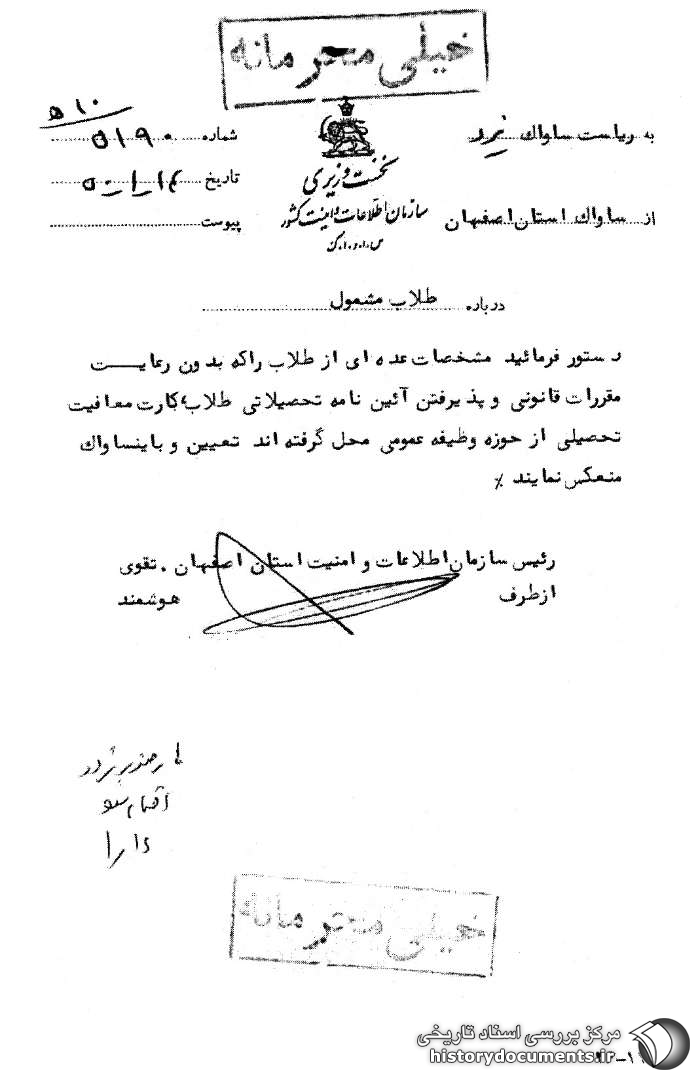 خیلی محرمانه
به ریاست ساواک یزد
از ساواک استان اصفهان
نخست وزیری
سازمان اطلاعات و امنیت کشور
س.ا.و.ا.ک
۵۱۰
شماره ۵۱۹۰
تاریخ
پیوست
درباره طلاب مشمول
دستور فرمائید مشخصات عده ای از طلاب راکه بدون رعایت
مقررات قانونی و پذیرفتن آئین نامه تحصیلاتی طلاب، کارت معافیت
تحصیلی از حوزه وظیفه عمومی محل گرفته اند تعیین و باینساواک
منعکس نمایند ٪
رئیس سازمان اطلاعات و امنیت استان اصفهان . تقوی
ازطرف هوشمند
اقدام شود
خیلی محرمانه
مرکز بررسی اسناد تاریخی
historydocuments.ir